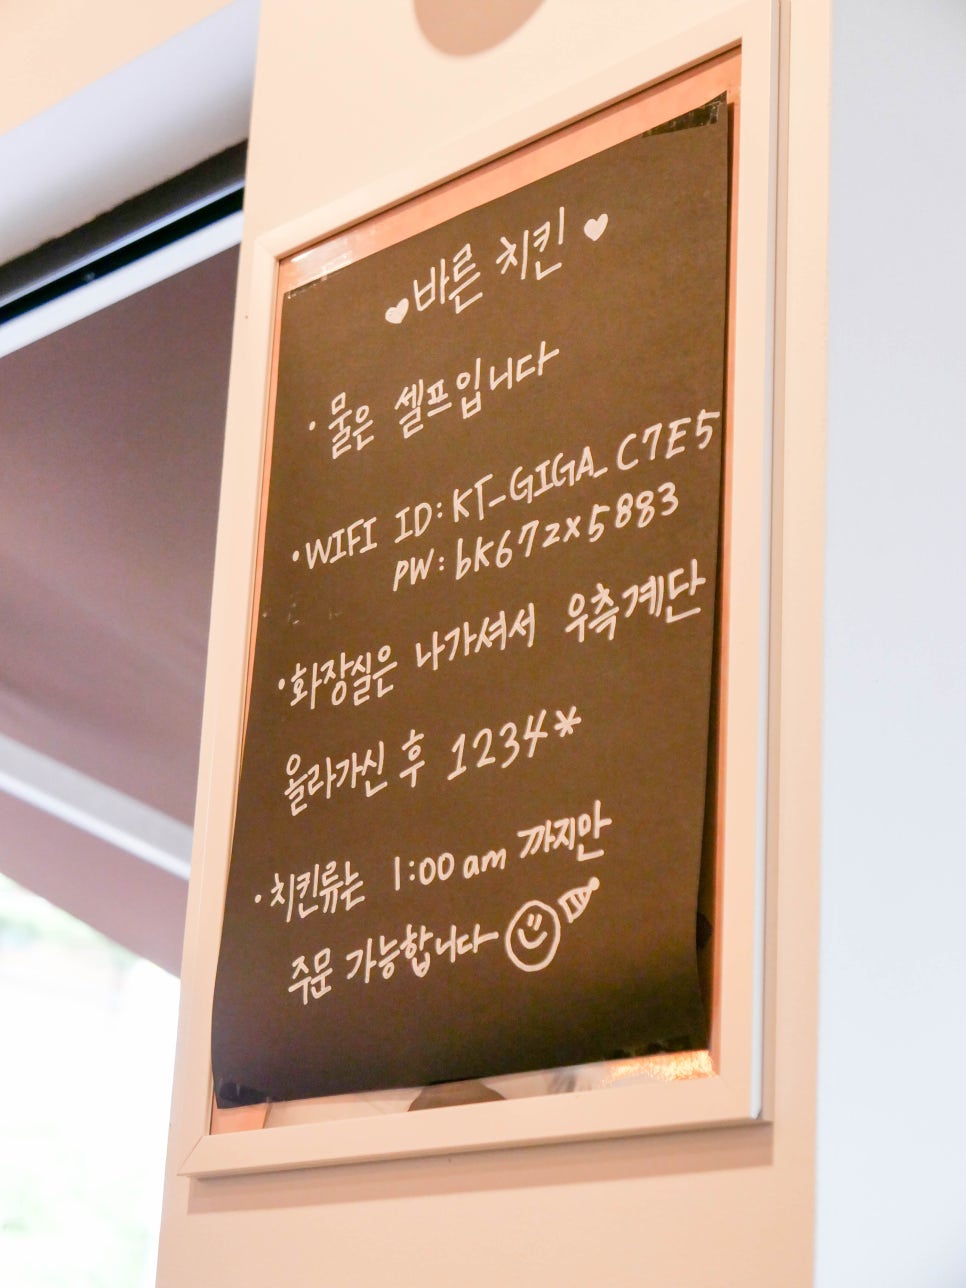 ♥바른 치킨♥
· 물은 셀프입니다
· WIFI ID: KT_GIGA_C7E5
PW: bk67zx5883
· 화장실은 나가셔서 우측계단
올라가신 후 1234*
· 치킨류는 1:00 am 까지만
주문 가능합니다